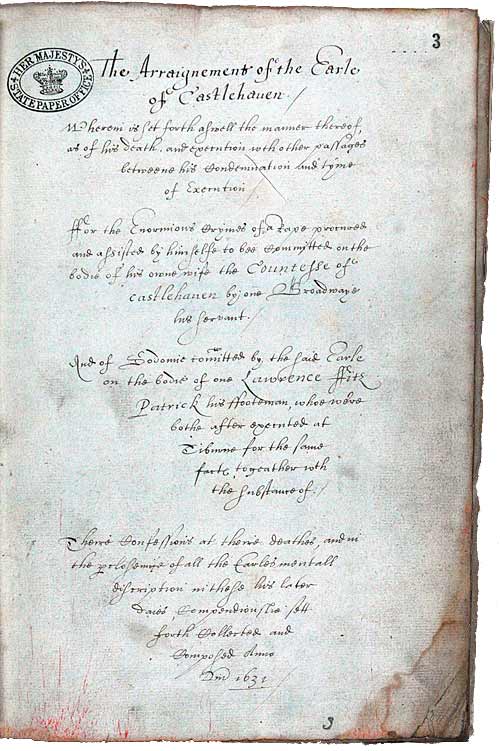 3
HER MAJESTY'S
STATE PAPER OFFICE
The Arraignement of the Earle
of Castlehaven
Wherein is set forth aswell the manner thereof,
as of his death, and execution wth other passages
betweene his Condemnation and tyme
of Execution
ffor the Enormious Crymes of a Rape procured
and assisted by himselfe to bee Committed on the
bodie of his owne wife the Countesse of
Castlehaven by one Broadwaye
his servant
And of Sodomie comitted by the said Earle
on the bodie of one Lawrence ffitz
Patrick his ffooteman, whoe were
bothe after executed at
Tiburne for the same
facte, togeather wth
the substance of
Theire Confessions at theire deathes, and in
the of all the Earles mentall
discription in these his later
daies, Compendiouslie sett
forth Collected and
Composed Anno
Dni 1631
3